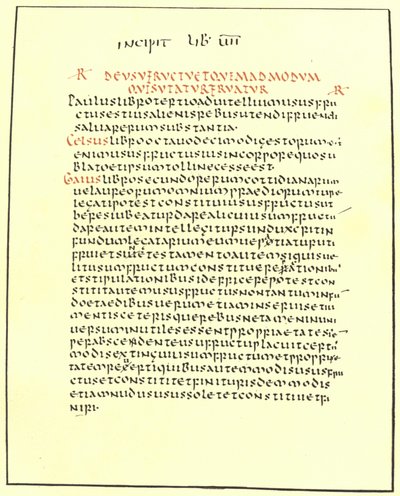 INCIPIT LIB
R DEUSUFRUCTUETQUEMADMODUM
QUISUTATURFRUATUR R
Pauluslibrotertioaduitelliumususfru
ctusestiusalienisrebusutendifruendi
saluarerumsubstantia.
Celsuslibrooctauodecimodigestorumest
enimususfructusiusincorporequosu
blatoetipsumtollinecesseest.
Gaiuslibrosecundorerumcottidianarum
uelaureorumomniumpraediorumiure
legatipotestconstituiususfructusut
heresiubeaturdarealicuiusumfructum
dareautemintellegitursiinduxeritin
fundumlegatariumeumuepatiaturuti
fruietsinetestamentoautemsiquisue
litusumfructumconstituerepactionib
etstipulationibusidefficerepotestcon
stititautemususfructusnontantuminfun
doetaedibusuerumetiaminseruisetiu
mentisceterisquerebusnetameninuni
uersuminutilesessentproprietatesse
mperabscedenteusufructuplacuitcert
modisextinguiusumfructumetproprie
tatemreuertiquibusautemmodisususfru
ctusetconstititetfinituriisdemmodis
etiamnudusususoletetconstituietfi
niri.